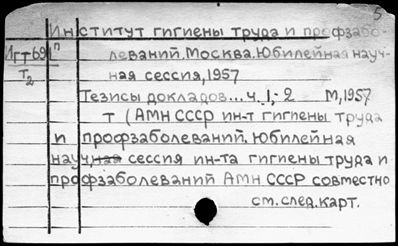 5
Институт гигиены труда и профзабо-
Игт691п леваний. Москва. Юбилейная науч-
Т2 ная сессия, 1957
Тезисы докладов... ч. 1,-2 М, 1957
т (АМН СССР ин-т гигиены труда
и профзаболеваний. Юбилейная
научная сессия ин-та гигиены труда и
профзаболеваний АМН СССР совместно
см. след. карт.